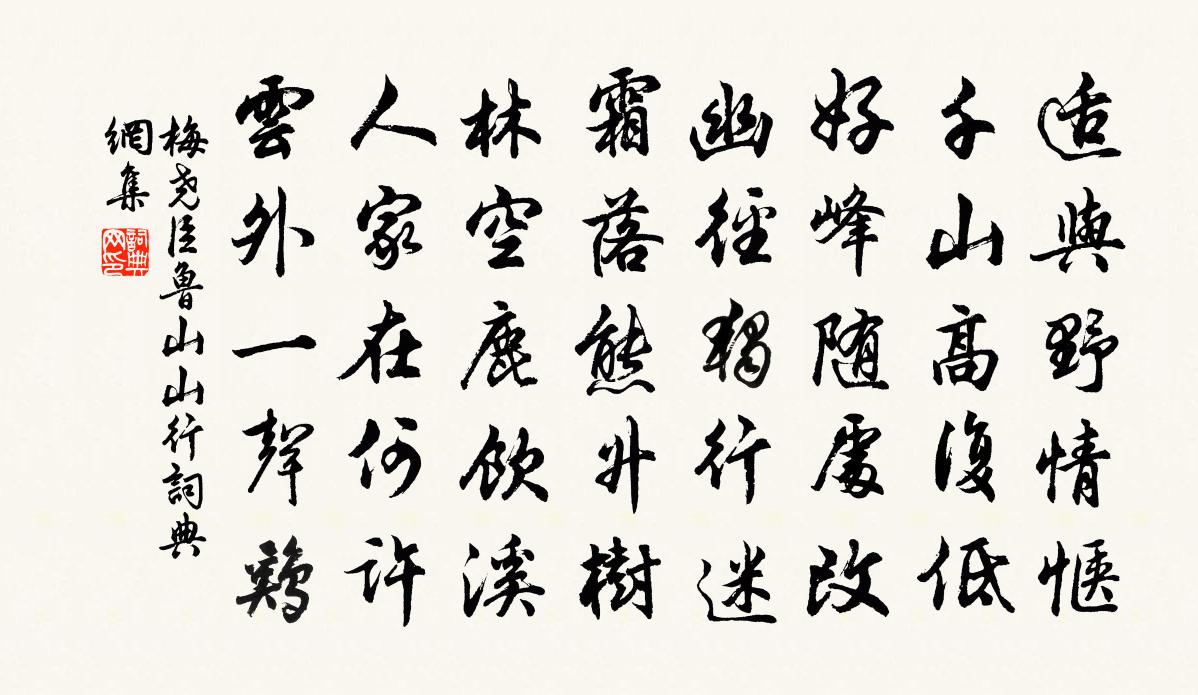 适與野情愜
千山高復低
好峰随處改
幽徑獨行迷
霜落熊升樹
林空鹿飲溪
人家在何許
雲外一聲鷄
梅堯臣魯山山行詞典
網集
詞典網印